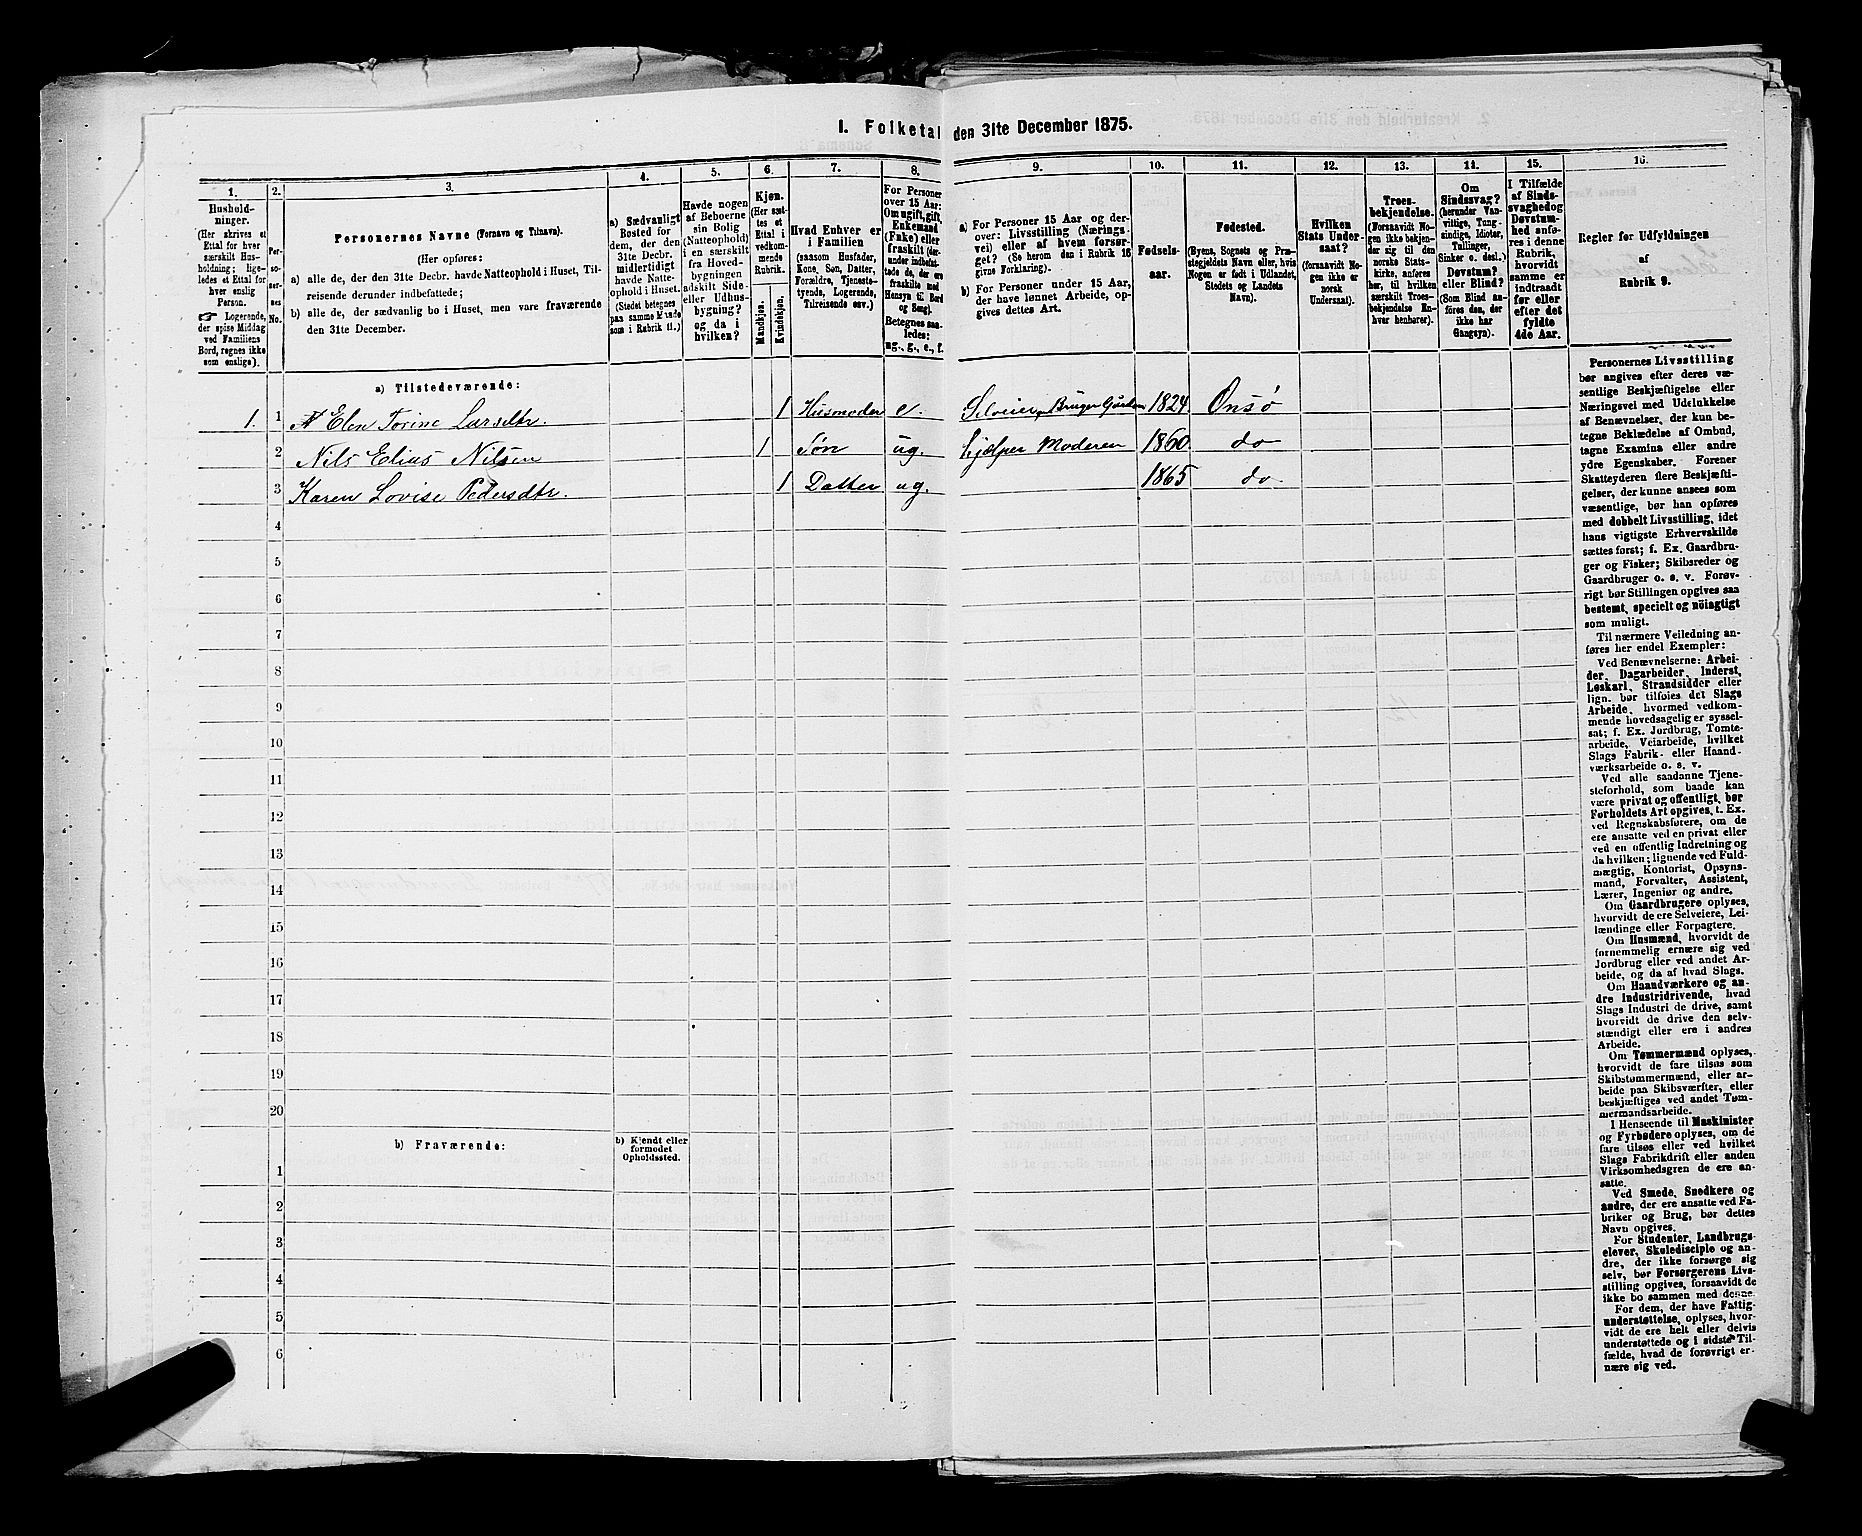 I. Folketal den 31te December 1875.
1.
Hushold-
ninger.
(Her skrives et
Ettal for hver
særskilt Hus-
holdning; lige-
ledes et Ettal for
hver enslig
Person.
Logerende,
der spise Middag
ved Familiens
Bord, regnes ikke
som enslige).
2.
Per-
soner-
nes
No.
3.
Personernes Navne (Fornavn og Tilnavn).
(Her opføres:
a) alle de, der den 31te Decbr. havde Natteophold i Huset, Til-
reisende derunder indbefattede;
b) alle de, der sædvanlig bo i Huset, men vare fraværende
den 31te December.
4.
a) Sædvanligt
Bosted for
dem, der den
31te Decbr.
midlertidigt
havde Natte-
ophold i Huset.
(Stedet betegnes
paa samme Maade
som i Rubrik 11.)
5.
Havde nogen
af Beboerne
sin Bolig
(Natteophold)
i en særskilt
fra Hoved-
bygningen
adskilt Side-
eller Udhus-
bygning?
og da i
hvilken?
6.
Kjøn.
(Her sæt-
tes et
Ettal i
vedkom-
mende
Rubrik.
Mandkjøn.
Kvindekjøn.
7.
Hvad Enhver er
i Familien
(saasom Husfader,
Kone, Søn, Datter,
Forældre, Tjeneste-
tyende, Logerende,
Tilreisende osv.)
8.
For Personer
over 15 Aar:
Om ugift, gift,
Enkemand
(Enke) eller
fraskilt (der-
under indbefat-
tede de, der ere
fraskilte med
Hensyn til Bord
og Seng).
Betegnes saa-
ledes:
ug., g., e., f.
9.
a) For Personer 15 Aar og der-
over: Livsstilling (Nærings-
vei) eller af hvem forsør-
get? (Se herom den i Rubrik 16
givne Forklaring).
b) For Personer under 15 Aar,
der have lønnet Arbeide, op-
gives dettes Art.
10.
Fødsels-
aar.
11.
Fødested.
(Byens, Sognets og Præ-
stegjeldets Navn eller, hvis
Nogen er født i Udlandet,
Stedets og Landets
Navn).
12.
Hvilken
Stats Under-
saat?
(forsaavidt No-
gen ikke er
norsk
Undersaat).
13.
Troes-
bekjendelse.
(Forsaavidt No-
gen ikke bekjen-
der sig til den
norske Stats-
kirke, anføres
her, til hvilken
særskilt Troes-
bekjendelse En-
hver henhører).
14.
Om
Sindssvag?
(herunder Van-
vittige, Tung-
sindige, Idioter,
Tullinger,
Sinker o. desl.).
Døvstum?
eller Blind?
(Som Blind an-
føres den, der
ikke har
Gangsyn).
15.
I Tilfælde
af Sinds-
svaghed og
Døvstum-
hed anfø-
res i denne
Rubrik,
hvorvidt
samme er
indtraadt
før eller
efter det
fyldte
4de Aar.
16.
Regler for Udfyldningen
af
Rubrik 9.
a) Tilstedeværende:
1. 1 Elen Torine Larsdtr. 1 Husmoder e. Selveier, Bruger Gården 1824 Onsø
2 Nils Elias Nilsen 1 Søn ug. hjælper Moderen 1860 do
3 Karen Lovise Pedersdtr. 1 Datter ug. 1865 do
4
5
6
7
8
9
10
11
12
13
14
15
16
17
18
19
20
b) Fraværende:
b) Kjendt eller
formodet
Opholdssted.
1
2
3
4
5
6
Personernes Livsstilling
bør angives efter deres væ-
sentlige Beskjæftigelse eller
Næringsvei med Udelukkelse
af Benævnelser, der kun be-
tegne Beklædelse af Ombud,
tagne Examina eller andre
ydre Egenskaber. Forener
Skatteyderen flere Beskjæfti-
gelser, der kunne ansees som
væsentlige, bør han opføres
med dobbelt Livsstilling, idet
hans vigtigste Erhvervskilde
sættes først; f. Ex. Gaardbru-
ger og Fisker; Skibsreder og
Gaardbruger o. s. v. Forøv-
rigt bør Stillingen opgives saa
bestemt, specielt og nöiagtigt
som muligt.
Til nærmere Veiledning an-
føres her endel Exempler:
Ved Benævnelserne: Arbei-
der, Dagarbeider, Inderst,
Løskarl, Strandsidder eller
lign. bør tilføies det Slags
Arbeide, hvormed vedkom-
mende hovedsagelig er syssel-
sat; f. Ex. Jordbrug, Tomte-
arbeide, Veiarbeide, hvilket
Slags Fabrik- eller Haand-
værksarbeide o. s. v.
Ved alle saadanne Tjene-
steforhold, som baade kan
være privat og offentligt, bør
Forholdets Art opgives, t. Ex.
ved Regnskabsførere, om de
ere ansatte ved en privat eller
ved en offentlig Indretning og
da hvilken; lignende ved Fuld-
mægtig, Kontorist, Opsyns-
mand, Forvalter, Assistent,
Lærer, Ingeniør og andre.
Om Gaardbrugere oplyses,
hvorvidt de ere Selveiere, Lei-
lændinge eller Forpagtere.
Om Husmænd, hvorvidt de
fornemmelig ernære sig ved
Jordbrug eller ved andet Ar-
beide, og da af hvad Slags.
Om Haandværkere og an-
dre Industridrivende, hvad
Slags Industri de drive, samt
hvorvidt de drive den selv-
stændigt eller ere i andres
Arbeide.
Om Tømmermænd oplyses,
hvorvidt de fare tilsøs som
Skibstømmermænd, eller ar-
beide paa Skibsværfter, eller
beskjæftiges ved andet Tøm-
mermandsarbeide.
I Henseende til Maskinister
og Fyrbødere oplyses, om de
fare tilsøs eller ved hvilket
Slags Fabrikdrift eller anden
Virksomhedsgren de ere an-
satte.
Ved Smede, Snedkere og
andre, der ere ansatte ved Fa-
briker og Brug, bør dettes
Navn opgives.
For Studenter, Landbrugs-
elever, Skoledisciple og an-
dre, der ikke forsørge sig
selv, bør Forsørgerens Livs-
stilling opgives, forsaavidt de
ikke bo sammen med denne.
For dem, der have Fattig-
understøttelse, oplyses, hvor-
vidt de ere helt eller delvis
understøttede og i sidste Til-
fælde, hvad de forøvrigt er-
nære sig ved.